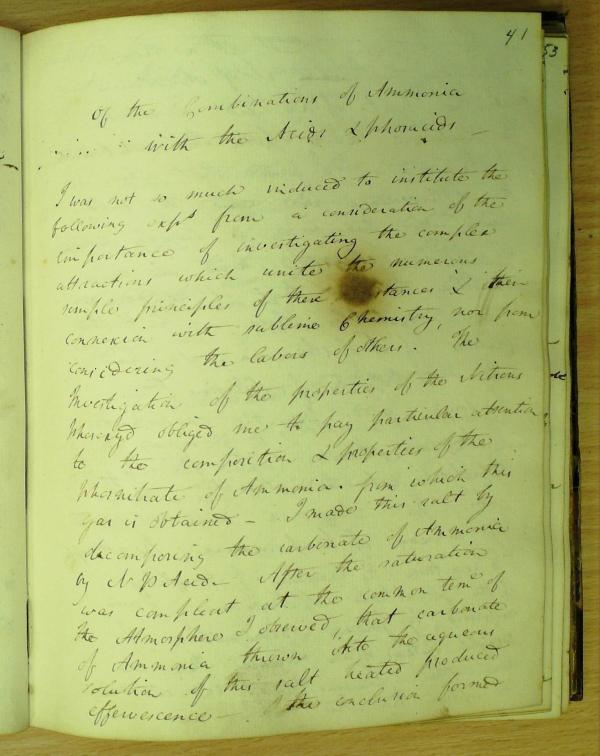 41
53
Of the Combinations of Ammonia
with the Acids & phosacids -
I was not so much induced to institute the
following expts from a consideration of the
importance of investigating the complex
attractions which unite the numerous
simple principles of these stances & their
connexion with sublime Chemistry, nor from
considering the labors of others. The
Investigation of the properties of the Nitrous
Phosoxyd obliged me to pay particular attention
to the composition & properties of the
phosnitrate of Ammonia. from which this
gas is obtained - I made this salt by
decomposing the carbonate of Ammonia
by N P Acid - After the saturation
was compleat at the common temp of
the Atmosphere I observed, that carbonate
of Ammonia thrown into the aqueous
solution of this salt heated produced
effervescence - the conclusion formed